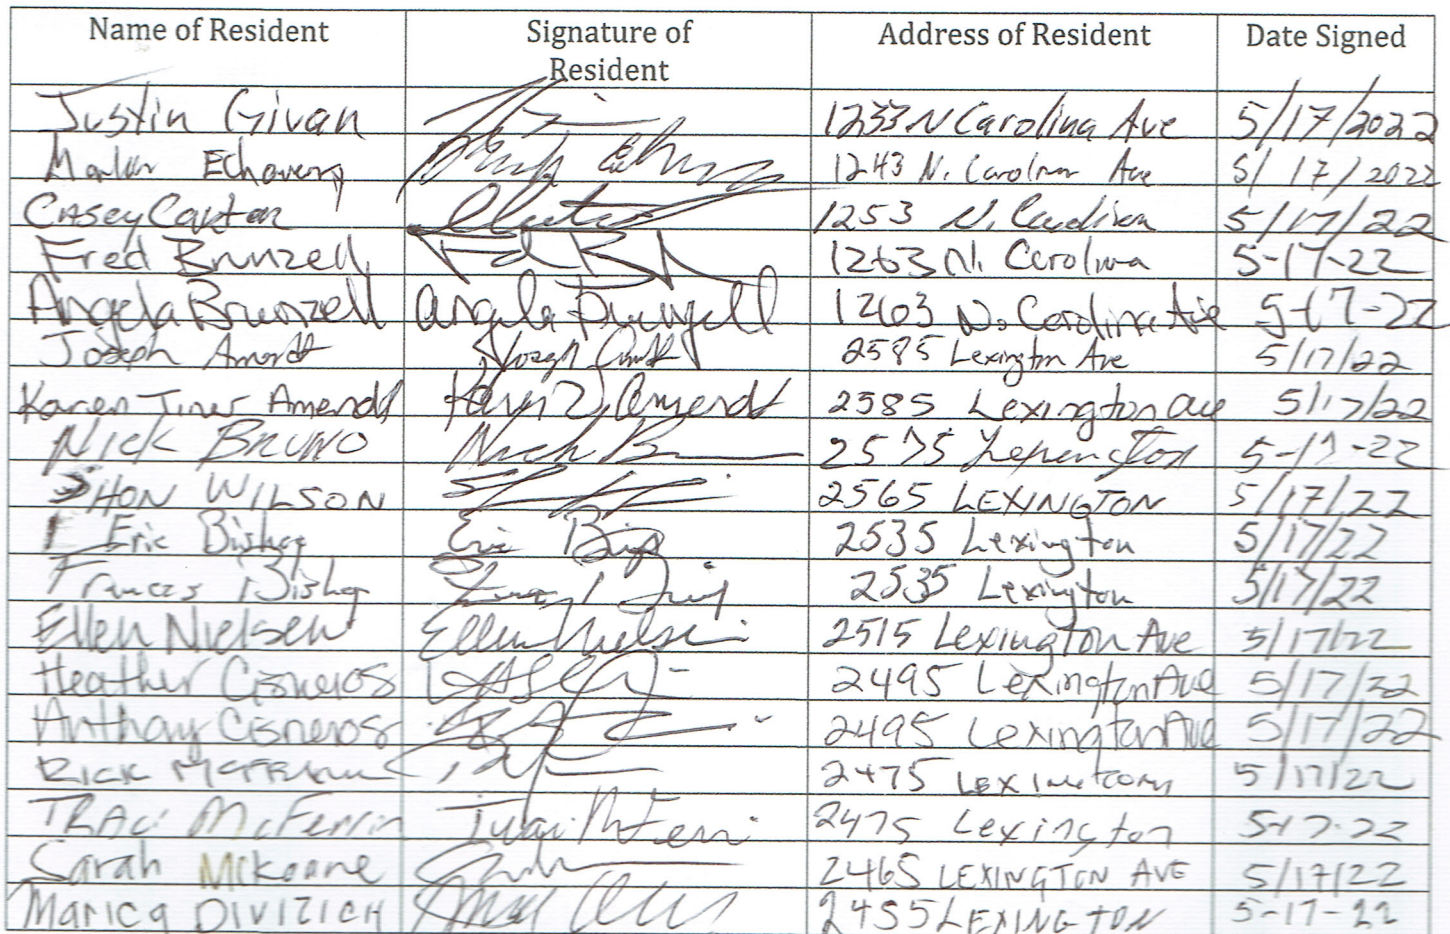 Name of Resident Signature of Resident Address of Resident Date Signed
Justin Givan 1233 N Carolina Ave 5/17/2022
1243 N. Carolina Ave 5/17/2022
Casey 1253 N. 5/17/22
Fred Brunzell 1263 N. Carolina 5-17-22
Angela Brunzell Angela Brunzell 1263 N. Carolina Ave 5-17-22
Joseph Amendt 2585 Lexington Ave 5/17/22
Karen Amendt Karen Amendt 2585 Lexington Ave 5/17/22
Nick Bruno Nick 2575 Lexington 5-17-22
SHON WILSON 2565 LEXINGTON 5/17/22
Eric Bishop Eric 2535 Lexington 5/17/22
Bishop 2535 Lexington 5/17/22
Ellen Nielsen Ellen Nielsen 2515 Lexington Ave 5/17/22
Heather Cisneros 2495 Lexington Ave 5/17/22
Anthony Cisneros 2495 Lexington Ave 5/17/22
Rick 2475 5/17/22
TRACi McFerrin Traci McFerrin 2475 Lexington 5-17-22
Sarah McKoane 2465 LEXINGTON AVE 5/17/22
Marica DIVIZICH 2455 LEXINGTON 5-17-22